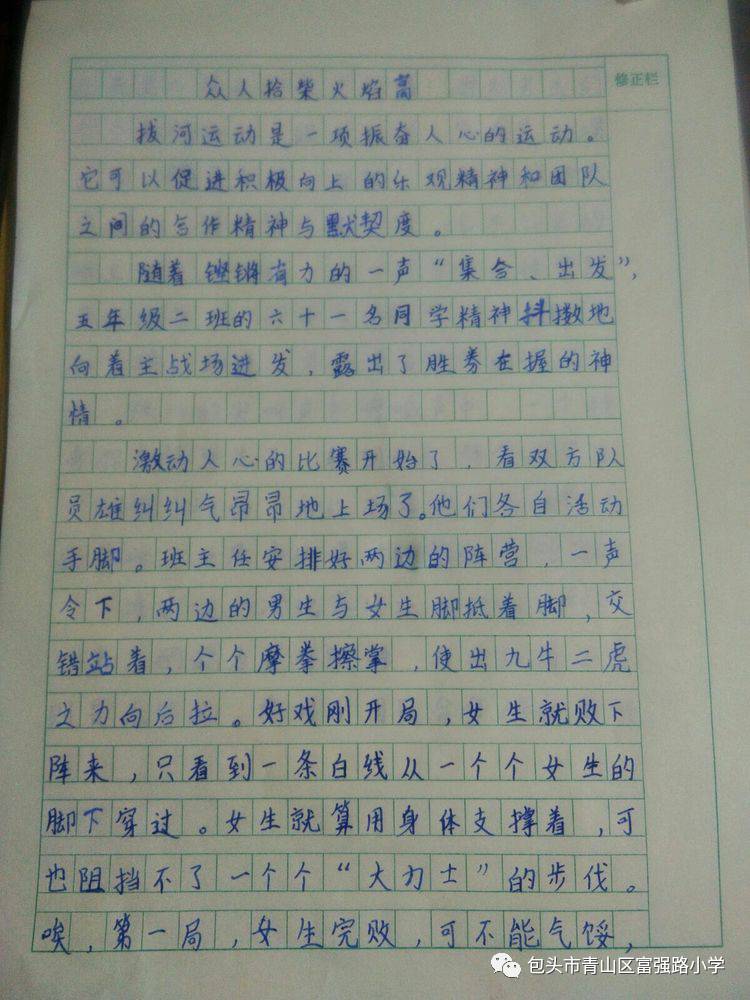 众人拾柴火焰高
修正栏
拔河运动是一项振奋人心的运动。
它可以促进积极向上的乐观精神和团队
之间的合作精神与默契度。
随着铿锵有力的一声“集合、出发”，
五年级二班的六十一名同学精神抖擞地
向着主战场进发，露出了胜券在握的神
情。
激动人心的比赛开始了，看双方队
员雄纠纠气昂昂地上场了。他们各自活动
手脚。班主任安排好两边的阵营，一声
令下，两边的男生与女生脚抵着脚，交
错站着，个个摩拳擦掌，使出九牛二虎
之力向后拉。好戏刚开局，女生就败下
阵来，只看到一条白线从一个个女生的
脚下穿过。女生就算用身体支撑着，可
也阻挡不了一个个“大力士”的步伐。
唉，第一局，女生完败，可不能气馁，
包头市青山区富强路小学